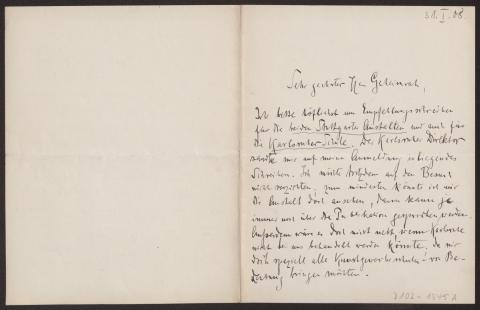 31.I.08.
Sehr geehrter Herr Geheimrat,
Ich bitte höflichst um Empfehlungsschreiben
für die beiden Stuttgarter Anstalten und auch für
die Karlsruher Schule. Der Karlsruher Direktor
schickte mir auf meine Anmeldung inliegendes
Schreiben. Ich möchte trotzdem auf den Besuch
nicht verzichten, zum mindesten könnte ich mir
die Anstalt dort ansehen, dann kann ja
immer noch über die Publikation gesprochen werden.
Ausserdem wäre es doch nicht nett, wenn Karlsruhe
nicht bei uns behandelt werden könnte, da wir
doch speziell alle Kunstgewerbeschulen von Be-
deutung bringen müssten.
D102-1545A